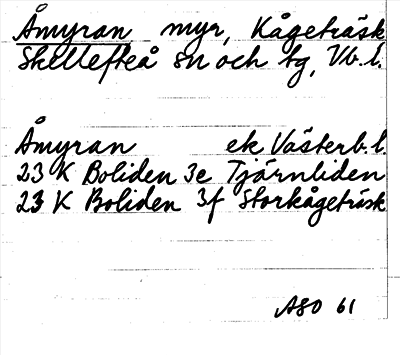 Åmyran myr, Kågeträsk
Skellefteå sn och tg, Vb. l.
Åmyran ek Västerb. l.
23 K Boliden 3e Tjärnliden
23 K Boliden 3f Storkågeträsk
ASO 61